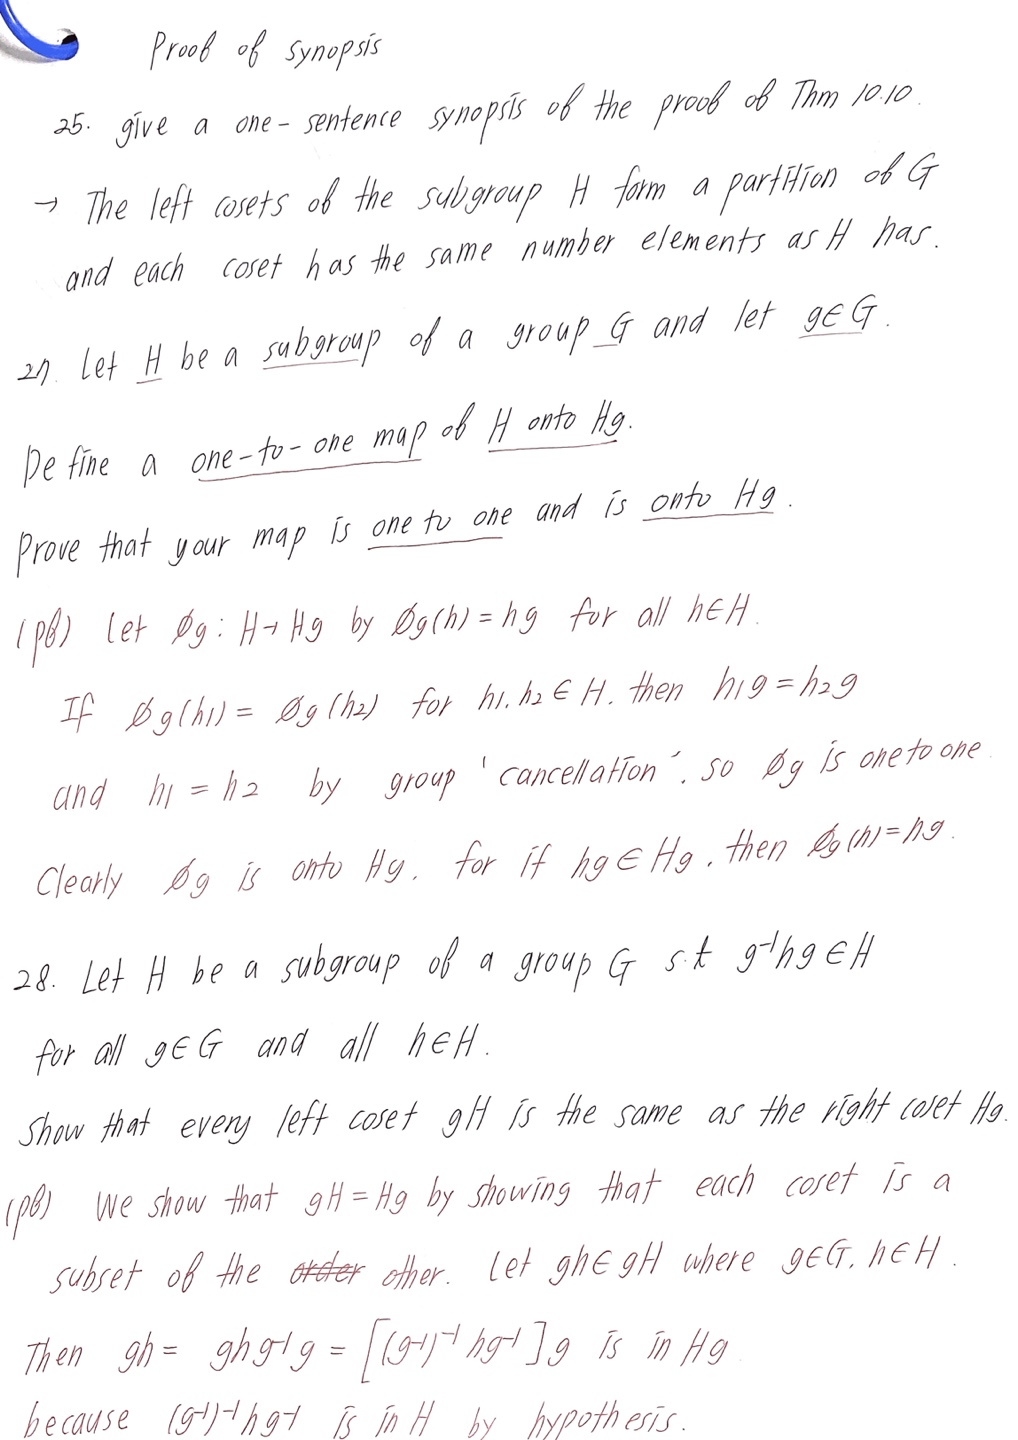 Proof of synopsis
25. give a one-sentence synopsis of the proof of Thm 10.10.
→ The left cosets of the subgroup H form a partition of G
and each coset has the same number elements as H has.
27. Let H be a subgroup of a group G and let g∈G.
Define a one-to-one map of H onto Hg.
Prove that your map is one to one and is onto Hg.
(pf) Let øg : H→Hg by øg(h) = hg for all h∈H.
If øg(h1) = øg(h2) for h1, h2 ∈ H. then h1g = h2g
and h1 = h2 by group 'cancellation', so øg is one to one.
Clearly øg is onto Hg. for if hg ∈ Hg, then øg(h) = hg.
28. Let H be a subgroup of a group G s.t g⁻¹hg ∈H
for all g∈G and all h∈H.
Show that every left coset gH is the same as the right coset Hg.
(pf) We show that gH = Hg by showing that each coset is a
subset of the order other. Let gh∈gH where g∈G, h∈H.
Then gh = ghg⁻¹g = [(g⁻¹)⁻¹hg⁻¹]g is in Hg
because (g⁻¹)⁻¹hg⁻¹ is in H by hypothesis.